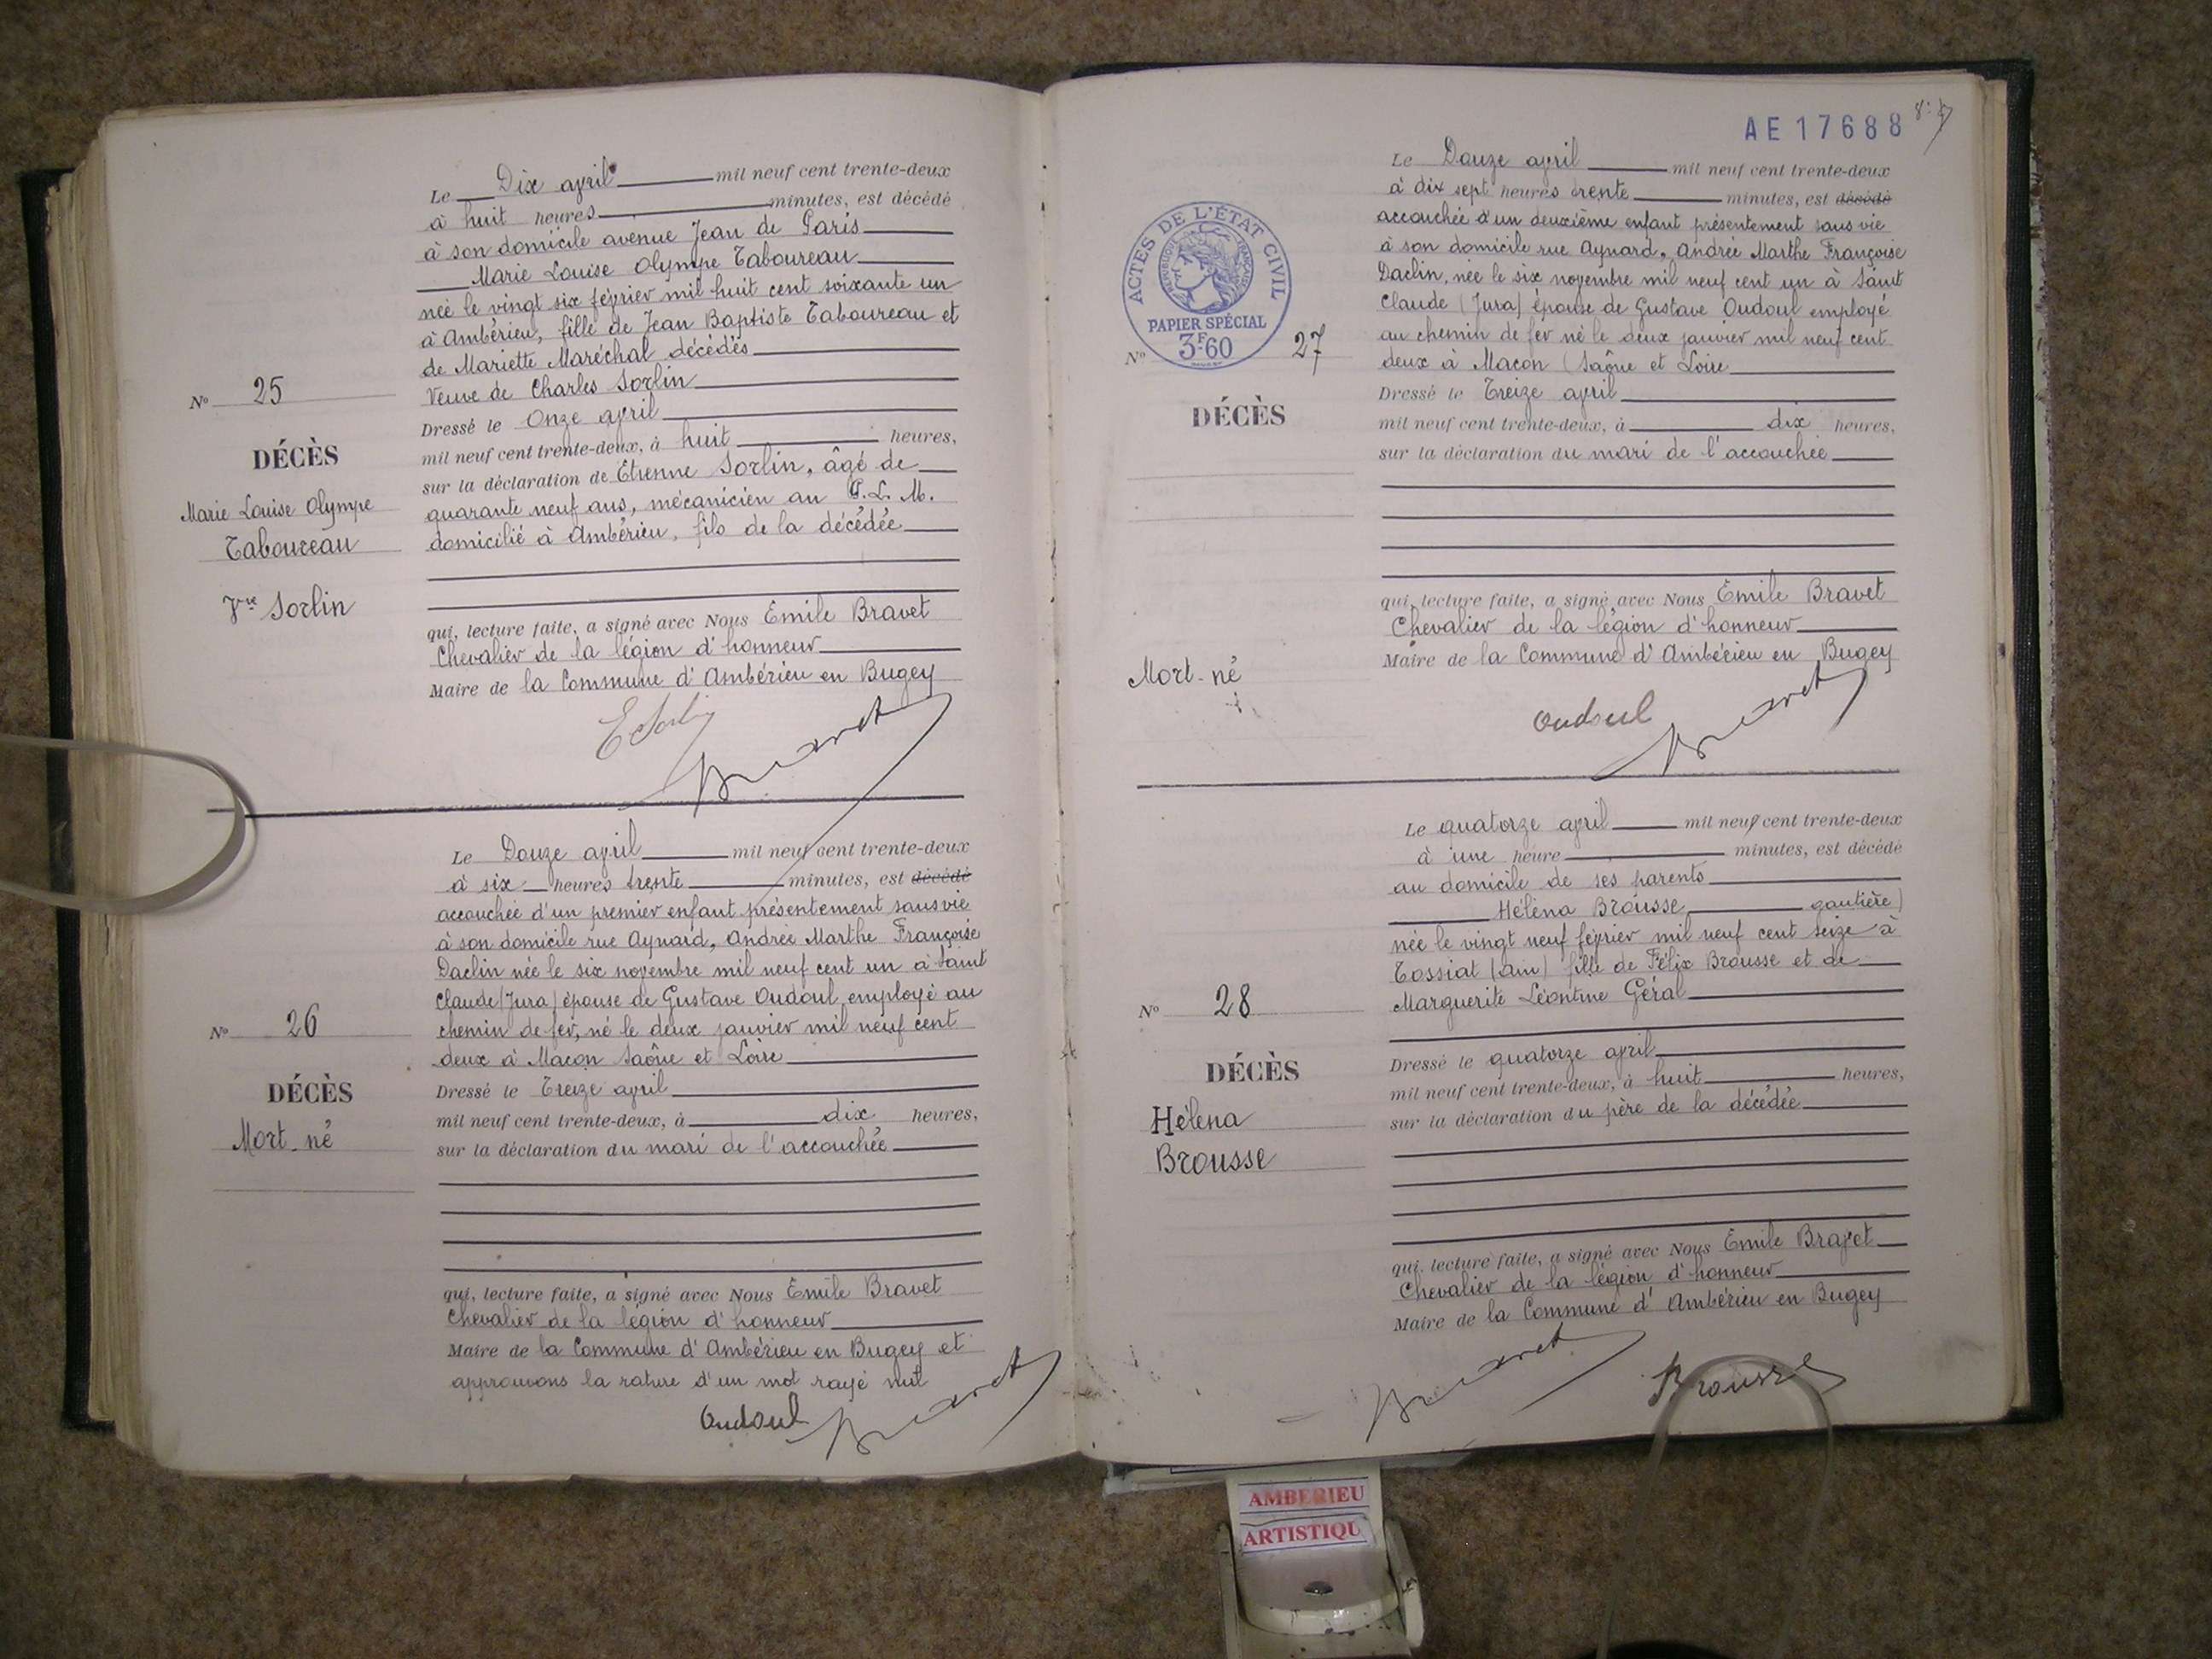 Le Dix avril mil neuf cent trente-deux
à huit heures minutes, est décédé
à son domicile avenue Jean de Paris
Marie Louise Olympe Taboureau
née le vingt six février mil huit cent soixante un
à Ambérieu, fille de Jean Baptiste Taboureau et
de Mariette Maréchal décédés
Veuve de Charles Sorlin
Dressé le Onze avril
mil neuf cent trente-deux, à huit heures,
sur la déclaration de Etienne Sorlin, âgé de
quarante neuf ans, mécanicien au P. L. M.
domicilié à Ambérieu, fils de la décédée
qui, lecture faite, a signé avec Nous Emile Bravet
Chevalier de la légion d'honneur
Maire de la Commune d'Ambérieu en Bugey
E Sorlin
Bravet
N° 25
DÉCÈS
Marie Louise Olympe
Taboureau
Vve Sorlin
Le Douze avril mil neuf cent trente-deux
à six heures trente minutes, est décédé
accouchée d'un premier enfant présentement sans vie
à son domicile rue Aynard, Andrée Marthe Françoise
Daclin née le six novembre mil neuf cent un à Saint
Claude (Jura) épouse de Gustave Oudoul, employé au
chemin de fer, né le deux janvier mil neuf cent
deux à Macon Saône et Loire
Dressé le Treize avril
mil neuf cent trente-deux, à dix heures,
sur la déclaration du mari de l'accouchée
qui, lecture faite, a signé avec Nous Emile Bravet
Chevalier de la légion d'honneur
Maire de la Commune d'Ambérieu en Bugey et
approuvons la rature d'un mot rayé nul
Oudoul Bravet
N° 26
DÉCÈS
Mort-né
AE 17688
Le Douze avril mil neuf cent trente-deux
à dix sept heures trente minutes, est décédé
accouchée d'un deuxième enfant présentement sans vie
à son domicile rue Aynard, Andrée Marthe Françoise
Daclin, née le six novembre mil neuf cent un à Saint
Claude (Jura) épouse de Gustave Oudoul employé
au chemin de fer né le deux janvier mil neuf cent
deux à Macon (Saône et Loire
Dressé le Treize avril
mil neuf cent trente-deux, à dix heures,
sur la déclaration du mari de l'accouchée
qui, lecture faite, a signé avec Nous Emile Bravet
Chevalier de la légion d'honneur
Maire de la Commune d'Ambérieu en Bugey
Oudoul Bravet
ACTES DE L'ÉTAT CIVIL
RÉPUBLIQUE FRANÇAISE
PAPIER SPÉCIAL
3F60
N° 27
DÉCÈS
Mort-né
Le quatorze avril mil neuf cent trente-deux
à une heure minutes, est décédé
au domicile de ses parents
Héléna Brousse gantière)
née le vingt neuf février mil neuf cent seize à
Tossiat (Ain) fille de Félix Brousse et de
Marguerite Léontine Géral
Dressé le quatorze avril
mil neuf cent trente-deux, à huit heures,
sur la déclaration du père de la décédée
qui, lecture faite, a signé avec Nous Emile Bravet
Chevalier de la légion d'honneur
Maire de la Commune d'Ambérieu en Bugey
Bravet Brousse
N° 28
DÉCÈS
Héléna
Brousse
AMBERIEU
ARTISTIQU